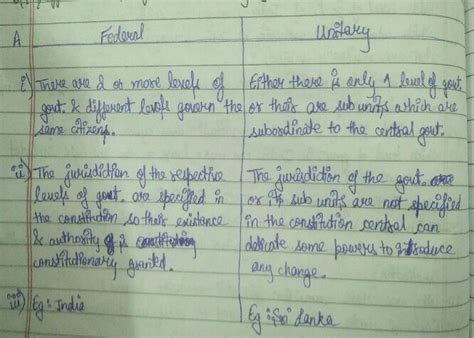 A Federal
i) There are 2 or more levels of
govt. & different levels govern the
same citizens.
ii) The jurisdiction of the respective
levels of govt. are specified in
the constitution so their existence
& authority is
constitutionary granted.
iii) Eg: India
Unitary
Either there is only 1 level of govt.
or their are sub units which are
subordinate to the central govt.
The jurisdiction of the govt.
or its sub units are not specified
in the constitution central can
delicate some powers to introduce
any change.
Eg: Sri Lanka